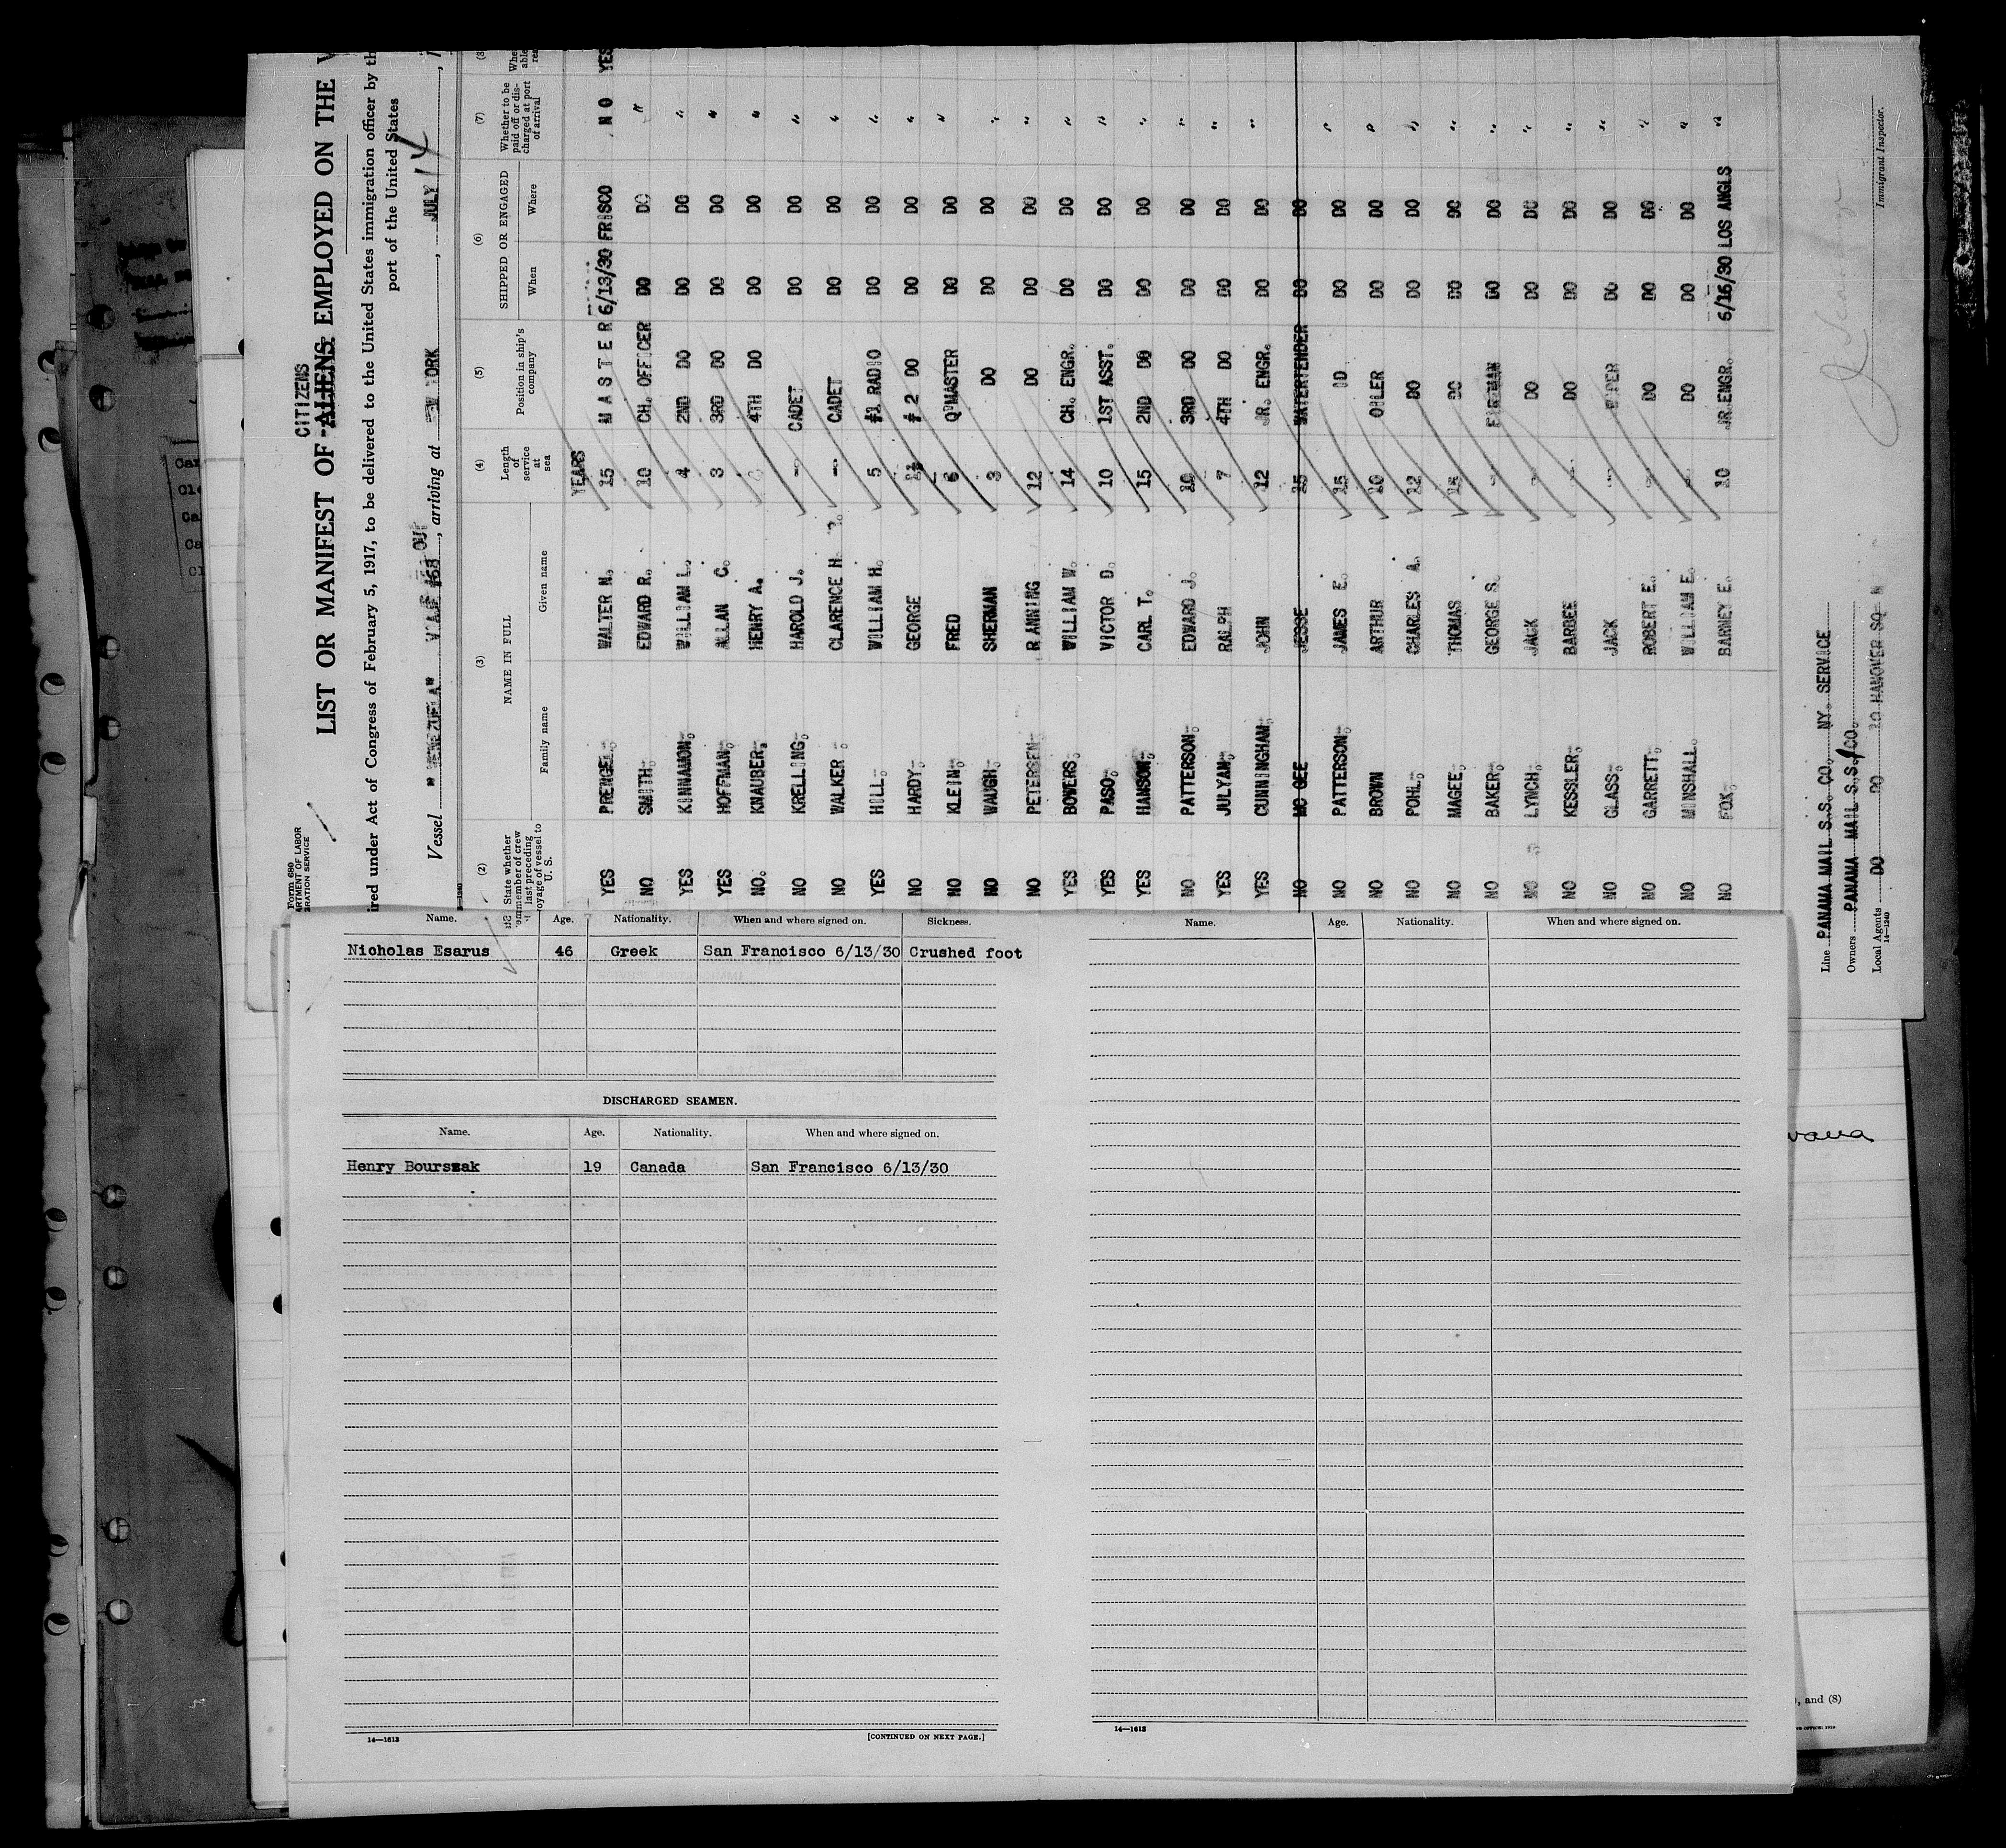 Form 680
CITIZENS
LIST OR MANIFEST OF ALIENS EMPLOYED ON THE
ired under Act of Congress of February 5, 1917, to be delivered to the United States immigration officer by th
port of the United States
Vessel "VENEZUELA", arriving at YORK, JULY
(2) (3) (4) (5) (6) (7)
State whether member of crew last preceding voyage of vessel to U. S. NAME IN FULL Length of service at sea Position in ship's company SHIPPED OR ENGAGED Whether to be paid off or discharged at port of arrival
Family name Given name When Where
YEARS
YES PRENGEL, WALTER N. 15 MASTER 6/13/30 FRISCO NO YES
NO SMITH, EDWARD R. 10 CH. OFFICER DO DO "
YES KINNAMON, WILLIAM L. 4 2ND DO DO DO "
YES HOFFMAN, ALLAN C. 3 3RD DO DO DO "
NO. KNAUBER, HENRY A. 4TH DO DO DO "
NO KRELLING, HAROLD J. - CADET DO DO "
NO WALKER, CLARENCE H. - CADET DO DO "
YES HILL, WILLIAM H. 5 #1 RADIO DO DO "
NO HARDY, GEORGE # 2 DO DO DO "
NO KLEIN, FRED 6 Q'MASTER DO DO "
NO WAUGH, SHERMAN 3 DO DO DO "
NO PETERSEN, R ANNING 12 DO DO DO "
YES BOWERS, WILLIAM W. 14 CH. ENGR. DO DO "
YES PASO, VICTOR D. 10 1ST ASST. DO DO "
YES HANSON, CARL T. 15 2ND DO DO DO "
NO PATTERSON, EDWARD J. 10 3RD DO DO DO "
YES JULYAN, RALPH 7 4TH DO DO DO "
YES CUNNINGHAM, JOHN 12 JR. ENGR. DO DO "
NO MC GEE JESSE 15 WATERTENDER DO DO
NO PATTERSON, JAMES E. 15 DO DO DO "
NO BROWN ARTHUR 10 OILER DO DO "
NO POHL, CHARLES A. 12 DO DO DO "
NO MAGEE, THOMAS 15 DO DO DO "
NO BAKER, GEORGE S. FIREMAN DO DO "
NO LYNCH, JACK DO DO DO "
NO KESSLER, BARBEE DO DO DO "
NO GLASS, JACK WIPER DO DO "
NO GARRETT, ROBERT E. DO DO DO "
NO MINSHALL. WILLIAM E. DO DO DO "
NO FOX, BARNEY E. 10 JR.ENGR. 6/16/30 LOS ANGLS "
Line PANAMA MAIL S.S. CO., NY. SERVICE
Owners PANAMA MAIL S.S. CO.
Local Agents DO DO 10 HANOVER SQ
14-1240
Immigrant Inspector.
Name. Age. Nationality. When and where signed on. Sickness.
Nicholas Esarus 46 Greek San Francisco 6/13/30 Crushed foot
DISCHARGED SEAMEN.
Name. Age. Nationality. When and where signed on.
Henry Bourszak 19 Canada San Francisco 6/13/30
14—1613 [CONTINUED ON NEXT PAGE.]
Name. Age. Nationality. When and where signed on.
14—1613
, and (8)